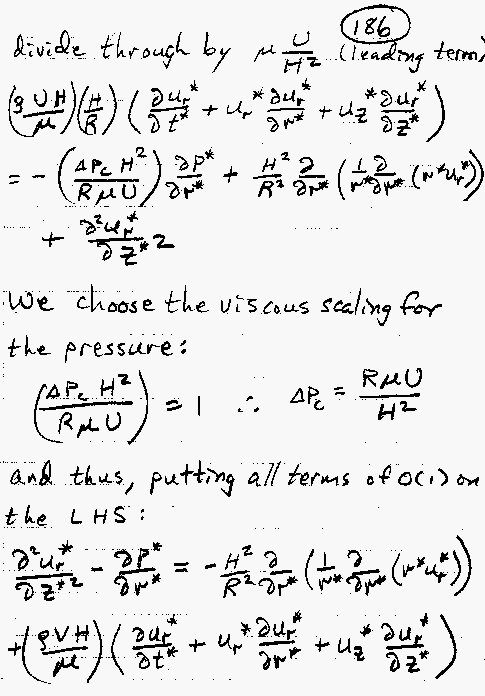 186
divide through by μ U/H² (leading term)
(ρUH/μ)(H/R) (∂uᵣ*/∂t* + uᵣ* ∂uᵣ*/∂r* + u_z* ∂uᵣ*/∂z*)
= - (ΔP_c H²/RμU) ∂P*/∂r* + H²/R² ∂/∂r* (1/r* ∂/∂r* (r*uᵣ*))
+ ∂²uᵣ*/∂z*²
We choose the viscous scaling for
the pressure:
(ΔP_c H²/RμU) = 1 ∴ ΔP_c = RμU/H²
and thus, putting all terms of O(1) on
the LHS:
∂²uᵣ*/∂z*² - ∂P*/∂r* = - H²/R² ∂/∂r* (1/r* ∂/∂r* (r*uᵣ*))
+ (ρVH/μ) (∂uᵣ*/∂t* + uᵣ* ∂uᵣ*/∂r* + u_z* ∂uᵣ*/∂z*)